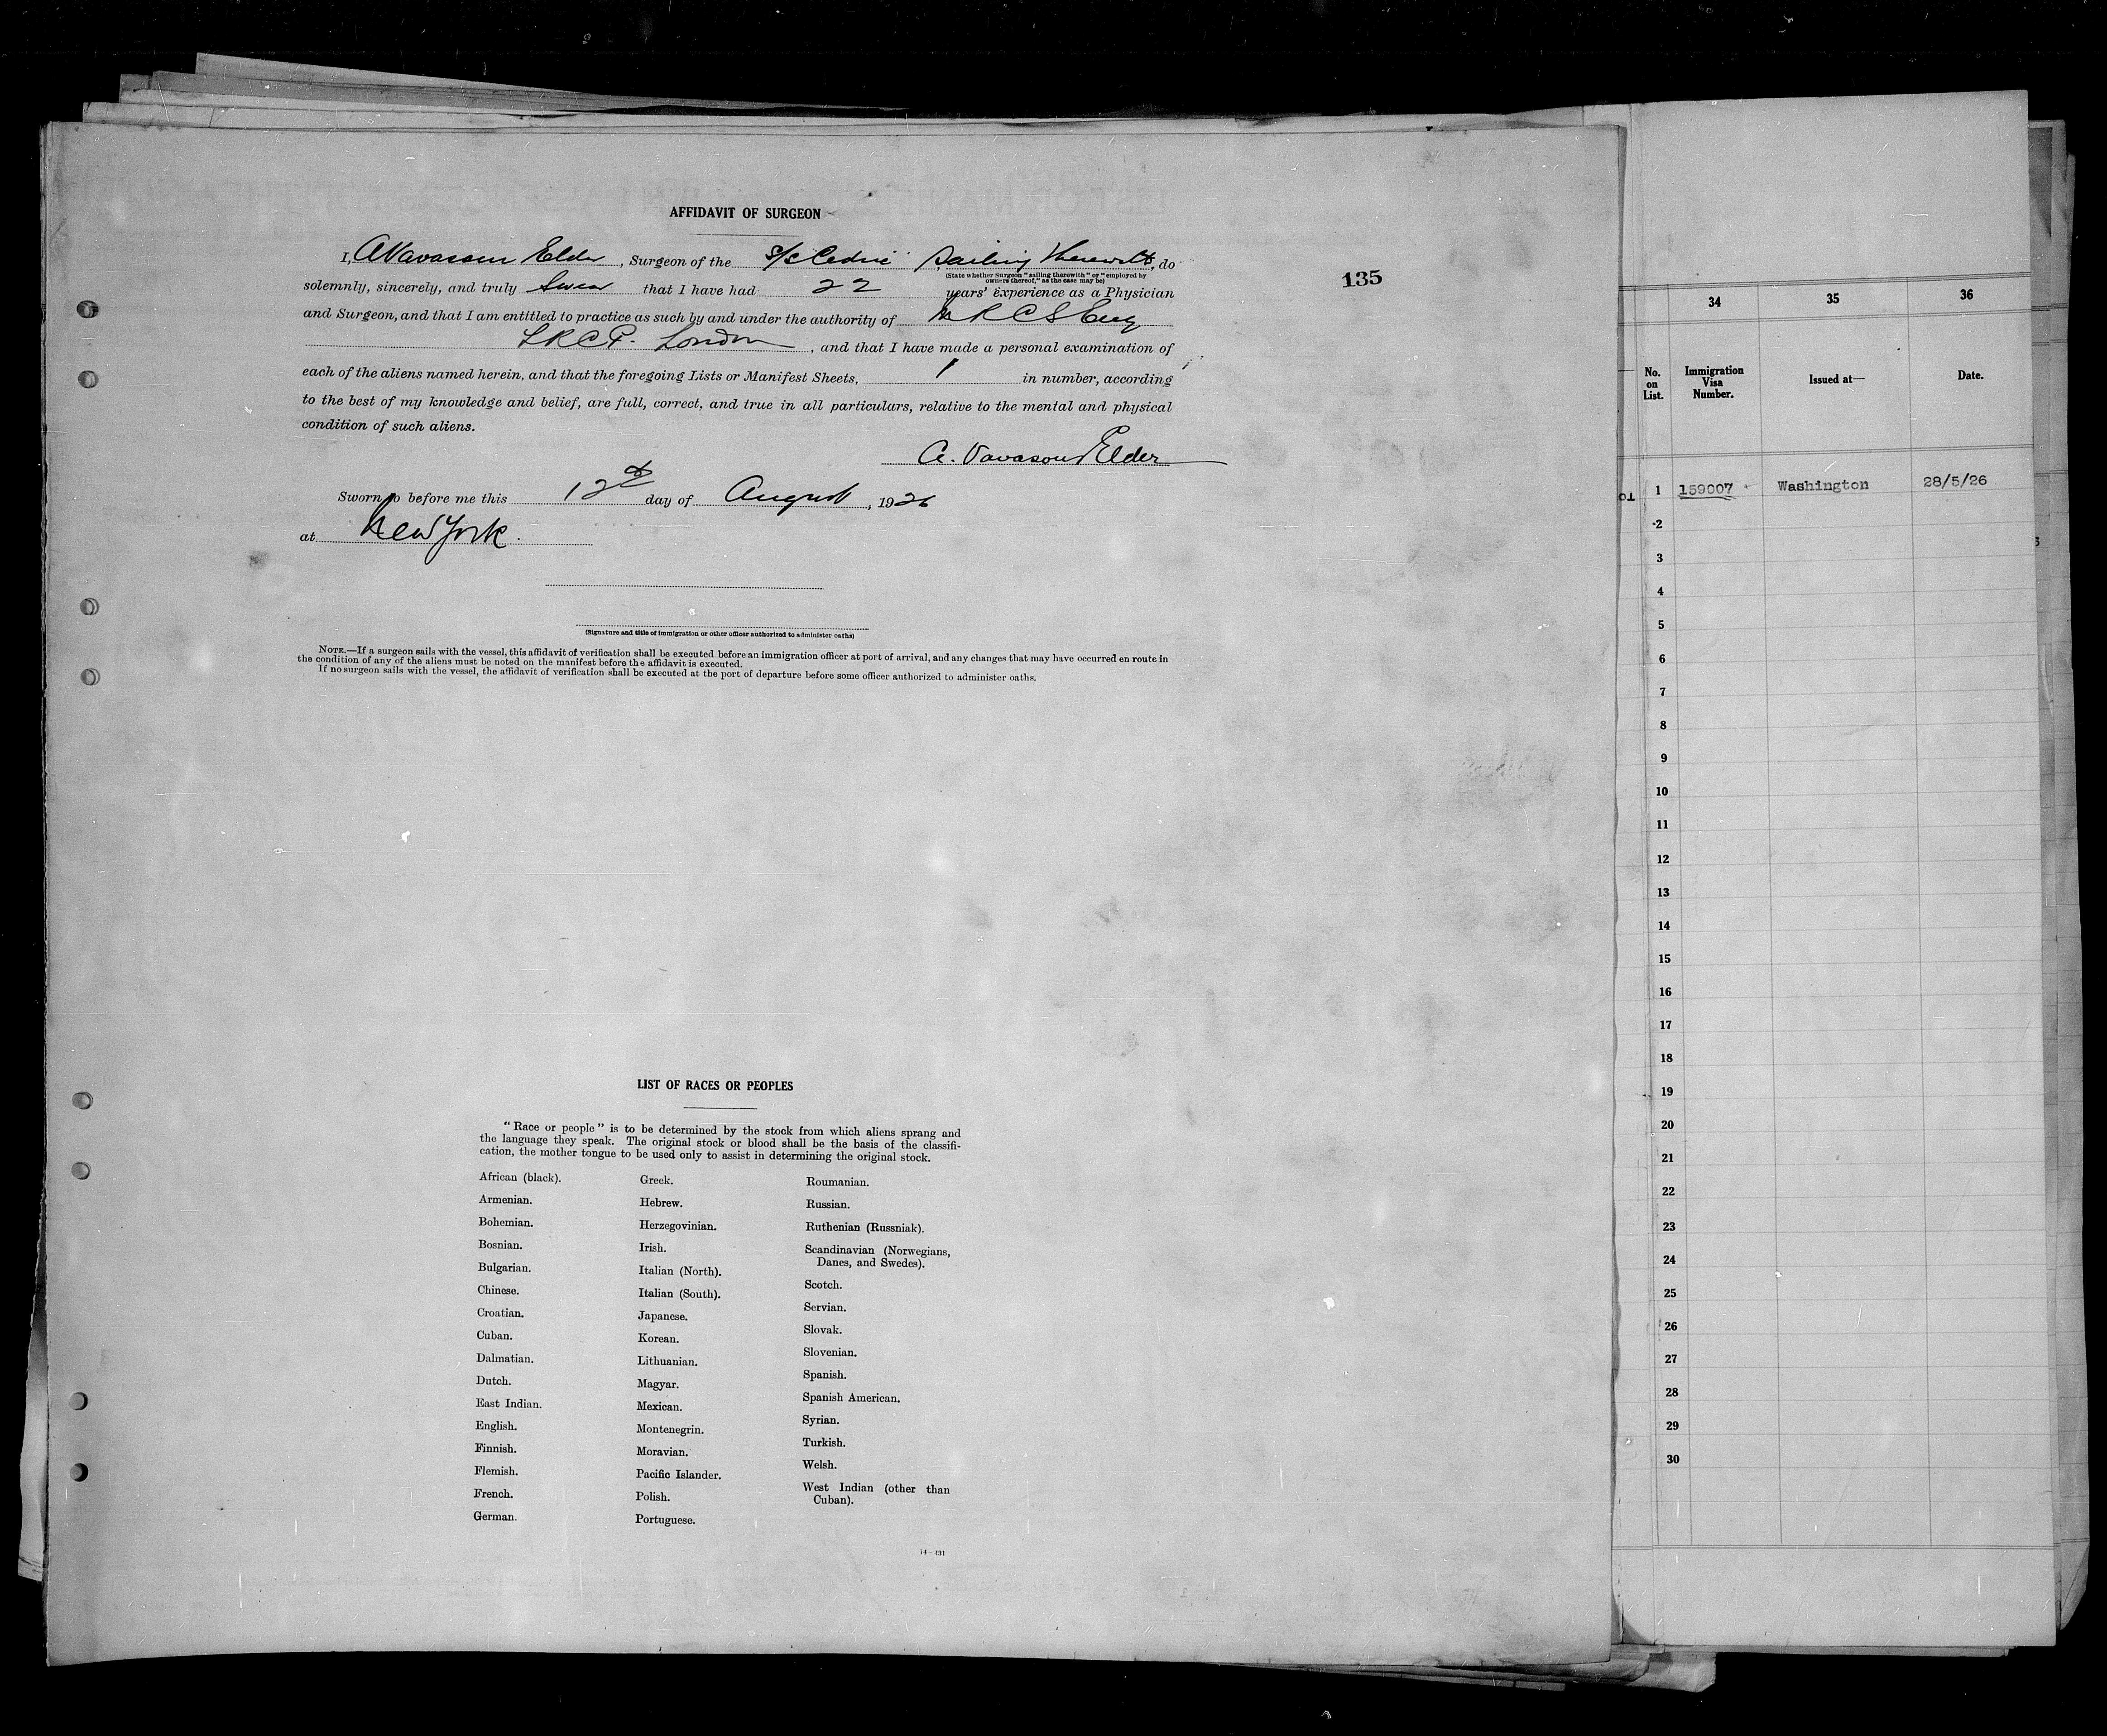 AFFIDAVIT OF SURGEON
I, A Vavasour Elder, Surgeon of the s/s Cedric, Sailing Therewith, do
(State whether Surgeon "sailing therewith" or "employed by
owners thereof," as the case may be)
135
solemnly, sincerely, and truly Swear that I have had 22 years' experience as a Physician
and Surgeon, and that I am entitled to practice as such by and under the authority of M R C S Eng
L R C P. London, and that I have made a personal examination of
each of the aliens named herein, and that the foregoing Lists or Manifest Sheets, 1 in number, according
to the best of my knowledge and belief, are full, correct, and true in all particulars, relative to the mental and physical
condition of such aliens.
A. Vavasour Elder
Sworn to before me this 12th day of August, 1926
at New York.
(Signature and title of immigration or other officer authorized to administer oaths)
NOTE.—If a surgeon sails with the vessel, this affidavit of verification shall be executed before an immigration officer at port of arrival, and any changes that may have occurred en route in
the condition of any of the aliens must be noted on the manifest before the affidavit is executed.
If no surgeon sails with the vessel, the affidavit of verification shall be executed at the port of departure before some officer authorized to administer oaths.
LIST OF RACES OR PEOPLES
"Race or people" is to be determined by the stock from which aliens sprang and
the language they speak. The original stock or blood shall be the basis of the classifi-
cation, the mother tongue to be used only to assist in determining the original stock.
African (black).
Armenian.
Bohemian.
Bosnian.
Bulgarian.
Chinese.
Croatian.
Cuban.
Dalmatian.
Dutch.
East Indian.
English.
Finnish.
Flemish.
French.
German.
Greek.
Hebrew.
Herzegovinian.
Irish.
Italian (North).
Italian (South).
Japanese.
Korean.
Lithuanian.
Magyar.
Mexican.
Montenegrin.
Moravian.
Pacific Islander.
Polish.
Portuguese.
Roumanian.
Russian.
Ruthenian (Russniak).
Scandinavian (Norwegians,
Danes, and Swedes).
Scotch.
Servian.
Slovak.
Slovenian.
Spanish.
Spanish American.
Syrian.
Turkish.
Welsh.
West Indian (other than
Cuban).
14—431
34 35 36
No.
on
List.
Immigration
Visa
Number.
Issued at—
Date.
1 159007 Washington 28/5/26
2
3
4
5
6
7
8
9
10
11
12
13
14
15
16
17
18
19
20
21
22
23
24
25
26
27
28
29
30